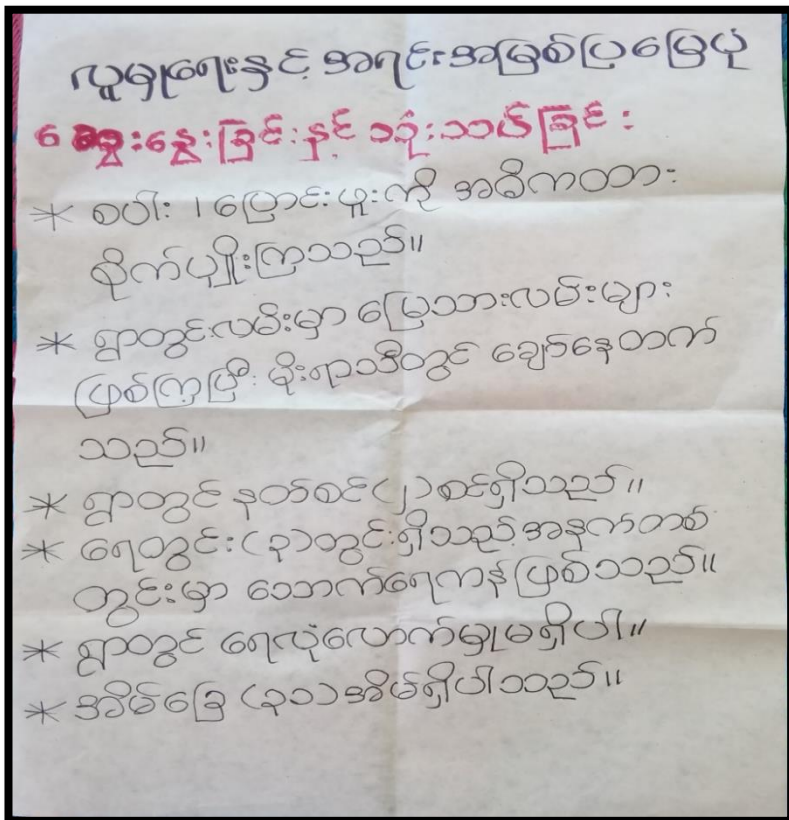 လူမှုရေးနှင့် အရင်းအမြစ်ပြမြေပုံ
ဆွေးနွေးခြင်းနှင့် သုံးသပ်ခြင်း
* စပါး ၊ ပြောင်းဖူးကို အဓိကထား
စိုက်ပျိုးကြသည်။
* ရွာတွင်းလမ်းမှာ မြေသားလမ်းများ
ဖြစ်ကြပြီး မိုးရာသီတွင် ချော်နေတက်
သည်။
* ရွာတွင် နတ်စင် (၂) စင်ရှိသည်။
* ရေတွင်း (၃) တွင်းရှိသည့်အနက်တစ်
တွင်းမှာ သောက်ရေကန်ဖြစ်သည်။
* ရွာတွင် ရေလုံလောက်မှုမရှိပါ။
* အိမ်ခြေ (၃၁) အိမ်ရှိပါသည်။